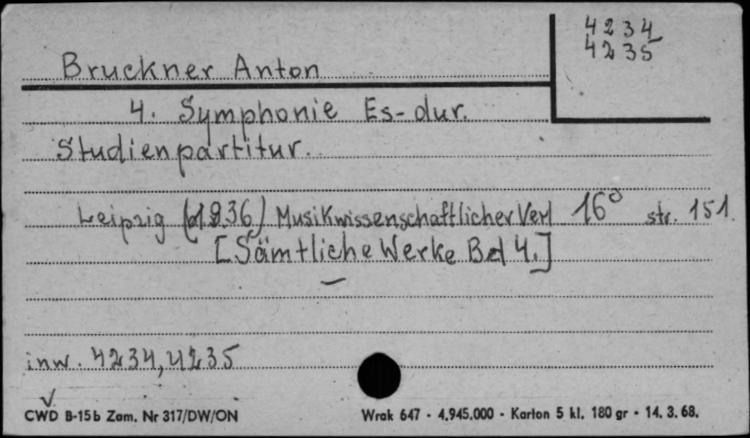 4234
4235
Bruckner Anton
4. Symphonie Es-dur.
Studienpartitur.
Leipzig (1936) Musikwissenschaftlicher Verl 16° str. 151.
[Sämtliche Werke Bd 4.]
inw. 4234, 4235
CWD B-15b Zam. Nr 317/DW/ON
Wrak 647 - 4.945.000 - Karton 5 kl. 180 gr - 14. 3. 68.